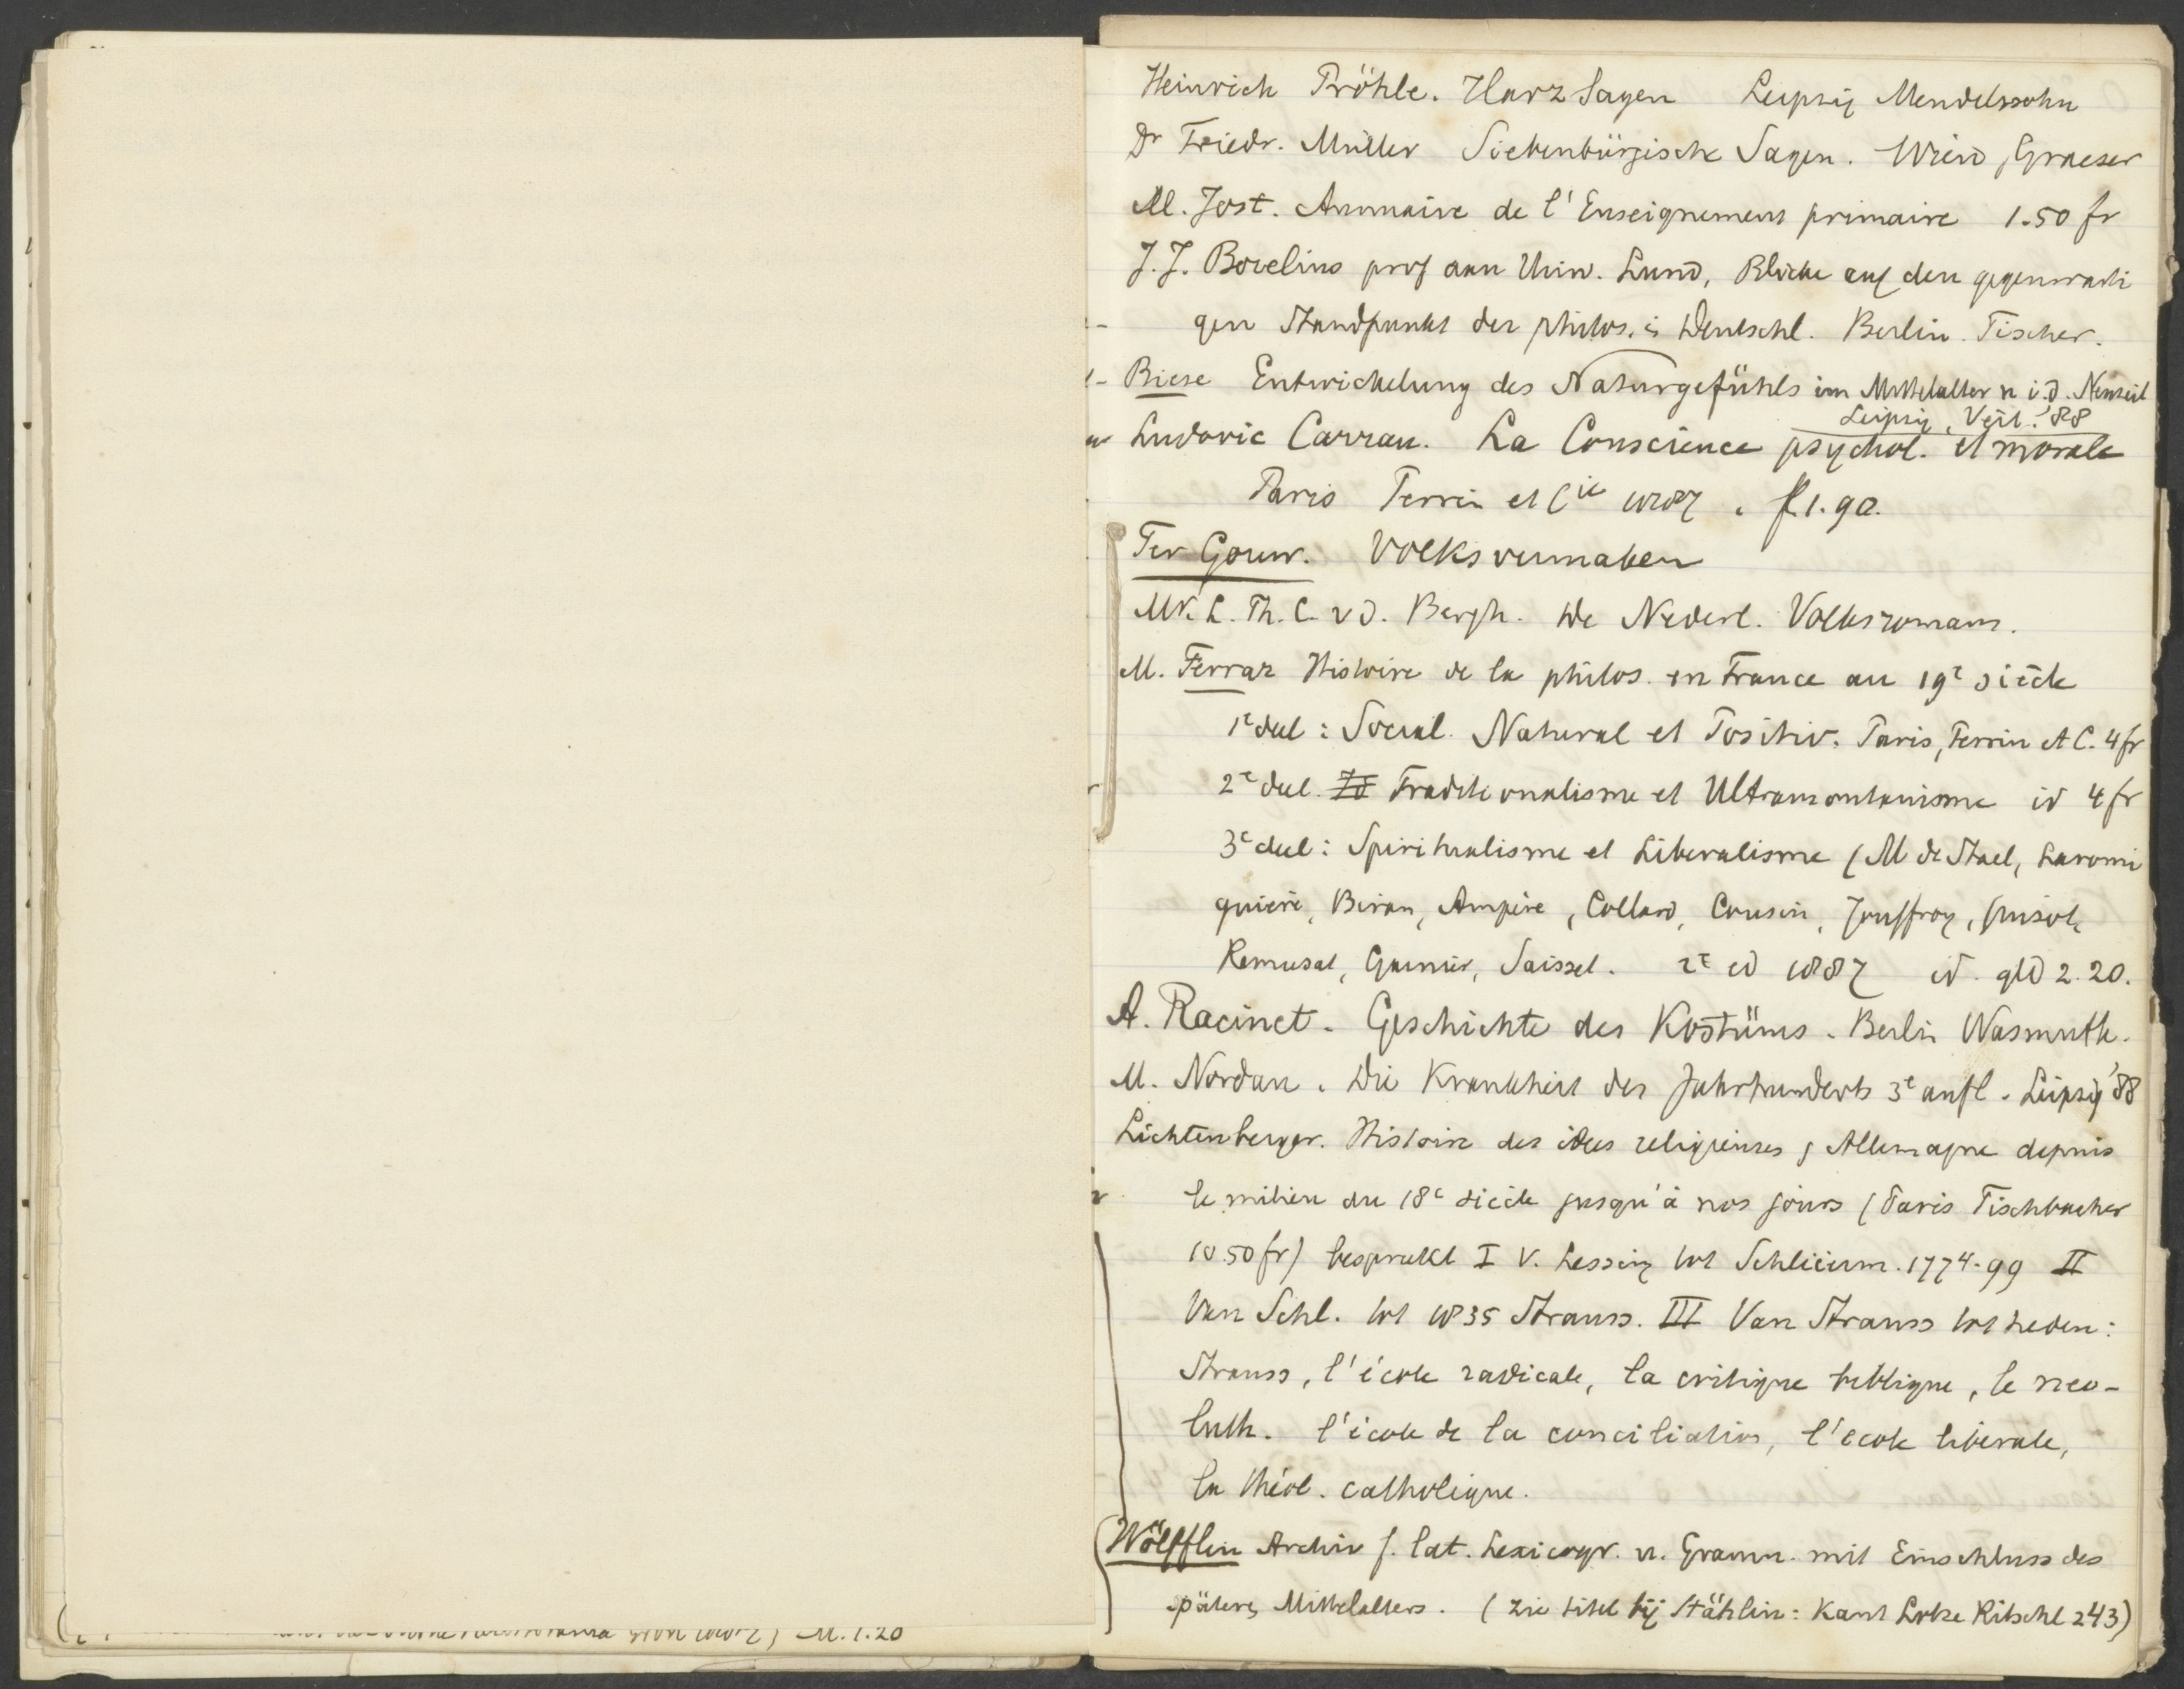 Heinrich Pröhle. Harz Sagen Leipzig Mendelssohn
Dr Friedr. Müller Siebenbürgische Sagen. Wien, Graeser
M. Jost. Annuaire de l'Enseignement primaire 1.50 fr
J.J. Borelius prof aan Univ. Lund, Blicke auf den gegenwarti
gen Standpunkt der philos. i. Deutschl. Berlin. Fischer.
Biese Entwickelung des Naturgefühls im Mittelalter u i.d. Neuzeit
Leipzig, Veit. '88
Ludovic Carrau. La Conscience psychol. et morale
Paris Perrin et Cie 1887. fl. 1.90.
Ter Gouw. Volksvermaken
Mr. L. Th. C. v d. Bergh. De Nederl. Volksromans.
M. Ferraz Histoire de la philos. en France au 19e siècle
1e deel: Social. Natural et Positiv. Paris, Perrin et C. 4 fr
2e deel. Id Traditionalisme et Ultramontanisme id 4 fr
3e deel: Spiritualisme et Liberalisme (M de Stael, Laromi
guière, Biran, Ampère, Collard, Cousin, Jouffroy, Guizot,
Remusat, Garnier, Saisset. 2e ed 1887 id. gld 2.20.
A. Racinet. Geschichte des Kostüms. Berlin Wasmuth.
M. Nordau. Die Krankheit des Jahrhunderts 3e aufl. Leipzig '88
Lichtenberger. Histoire des idees religieuses, Allemagne depuis
le milieu du 18e siècle jusqu'à nos jours (Paris Fischbacher
10.50 fr) besprekt I v. Lessing tot Schleierm. 1774-99 II
Van Schl. tot 1835 Strauss. III Van Strauss tot heden:
Strauss, l'école radicale, la critique biblique, le neo-
luth. l'école de la conciliation, l'ecole liberale,
la théol. catholique.
(Wölfflin Archiv f. lat. Lexicogr. u. Gramm. mit Einschluss des
späteren Mittelalters. (zie titel bij Stählin: Kant Lotze Ritschl 243)
M. 1.20